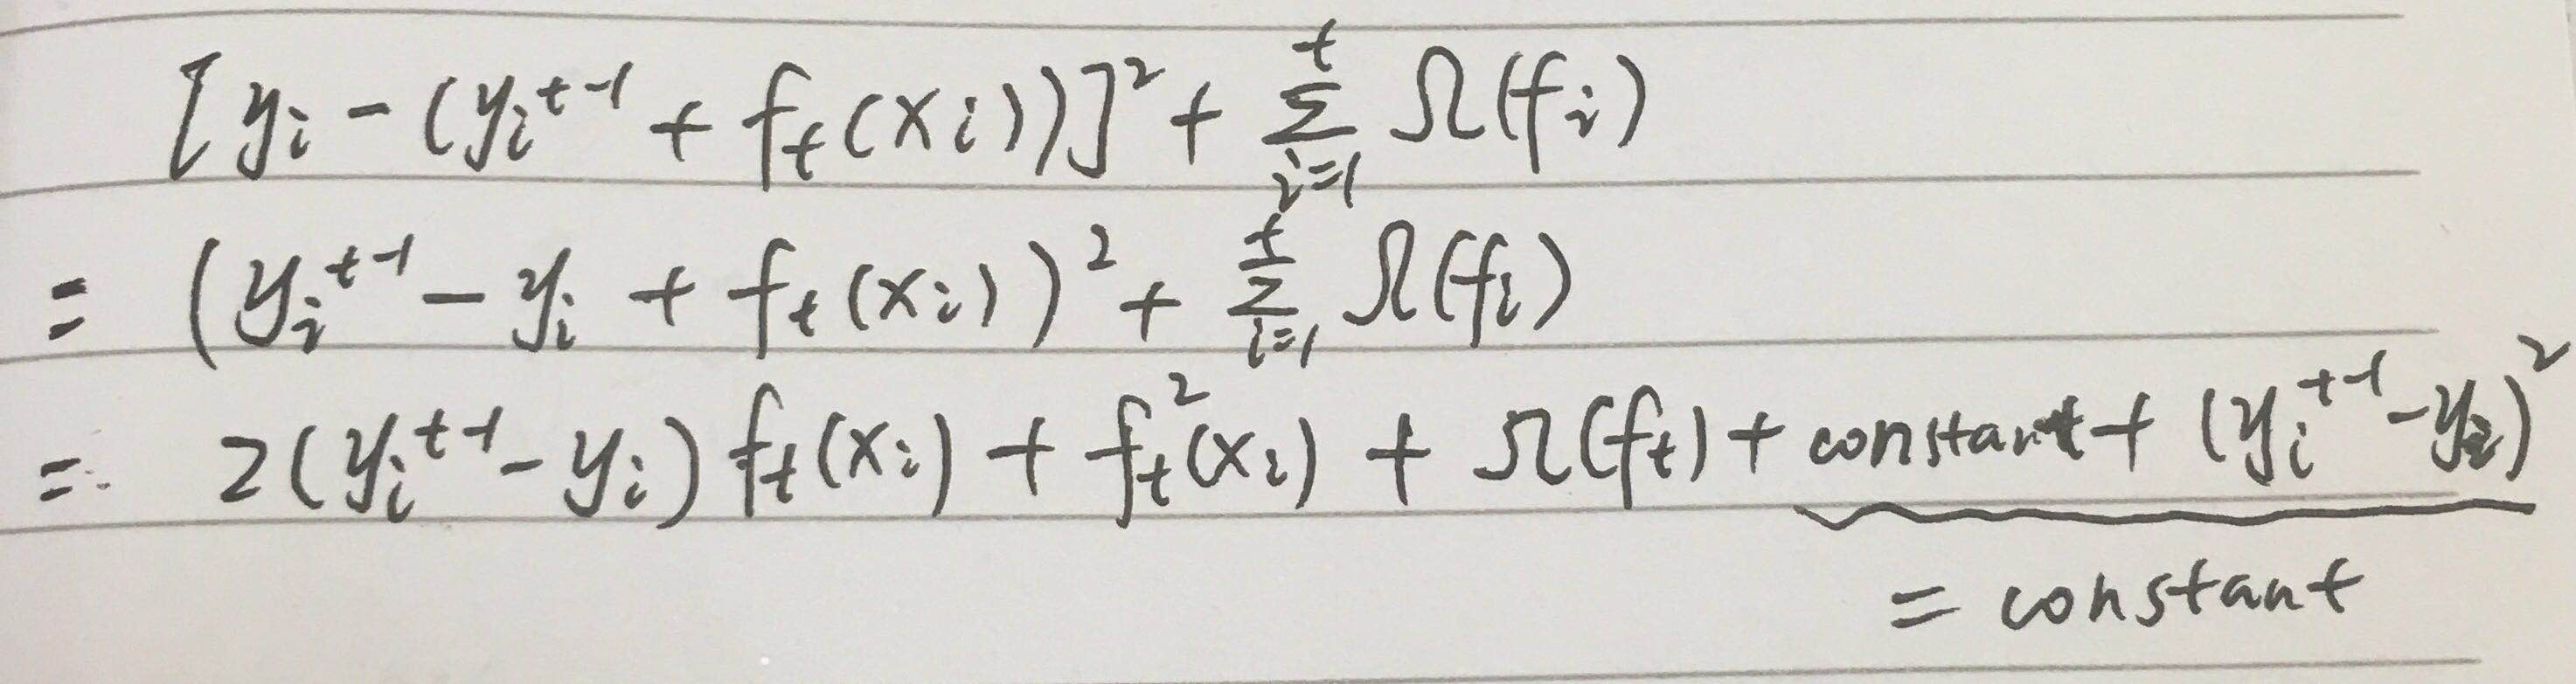 [y_i - (y_i^{t-1} + f_t(x_i))]^2 + \sum_{i=1}^{t} Ω(f_i)
= (y_i^{t-1} - y_i + f_t(x_i))^2 + \sum_{i=1}^{t} Ω(f_i)
= 2(y_i^{t-1} - y_i) f_t(x_i) + f_t^2(x_i) + Ω(f_t) + constant + (y_i^{t-1} - y_i)^2
= constant